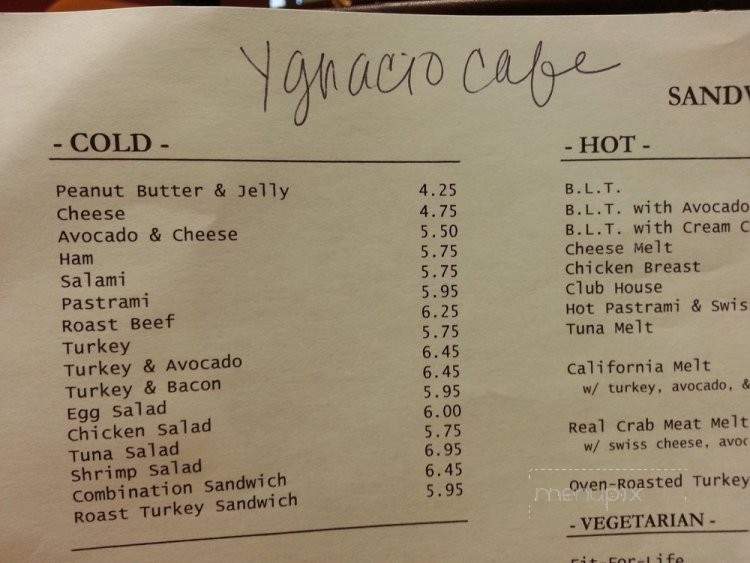 Ygnacio Cafe
SANDW
- COLD -
Peanut Butter & Jelly 4.25
Cheese 4.75
Avocado & Cheese 5.50
Ham 5.75
Salami 5.75
Pastrami 5.95
Roast Beef 6.25
Turkey 5.75
Turkey & Avocado 6.45
Turkey & Bacon 6.45
Egg Salad 5.95
Chicken Salad 6.00
Tuna Salad 5.75
Shrimp Salad 6.95
Combination Sandwich 6.45
Roast Turkey Sandwich 5.95
- HOT -
B.L.T.
B.L.T. with Avocado
B.L.T. with Cream C
Cheese Melt
Chicken Breast
Club House
Hot Pastrami & Swis
Tuna Melt
California Melt
w/ turkey, avocado, &
Real Crab Meat Melt
w/ swiss cheese, avoc
Oven-Roasted Turkey
menupix
- VEGETARIAN -
Fit-For-Life